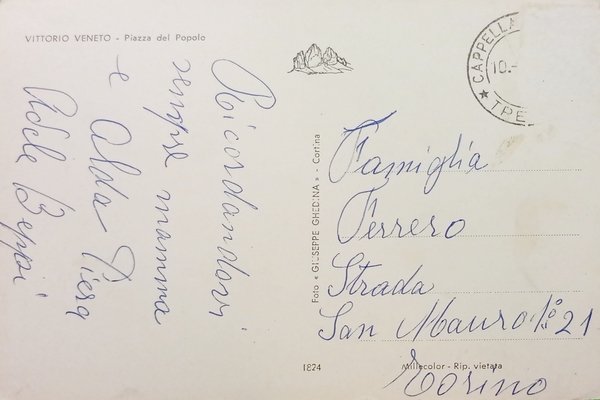 VITTORIO VENETO - Piazza del Popolo
Ricordandovi
sempre mamma
e Alda Piera
Adele Beppi
Foto « GIUSEPPE GHEDINA » - Cortina
CAPPELLA
10.-
★ TRE
Famiglia
Ferrero
Strada
San Mauro 21
Torino
1824
Millecolor - Rip. vietata